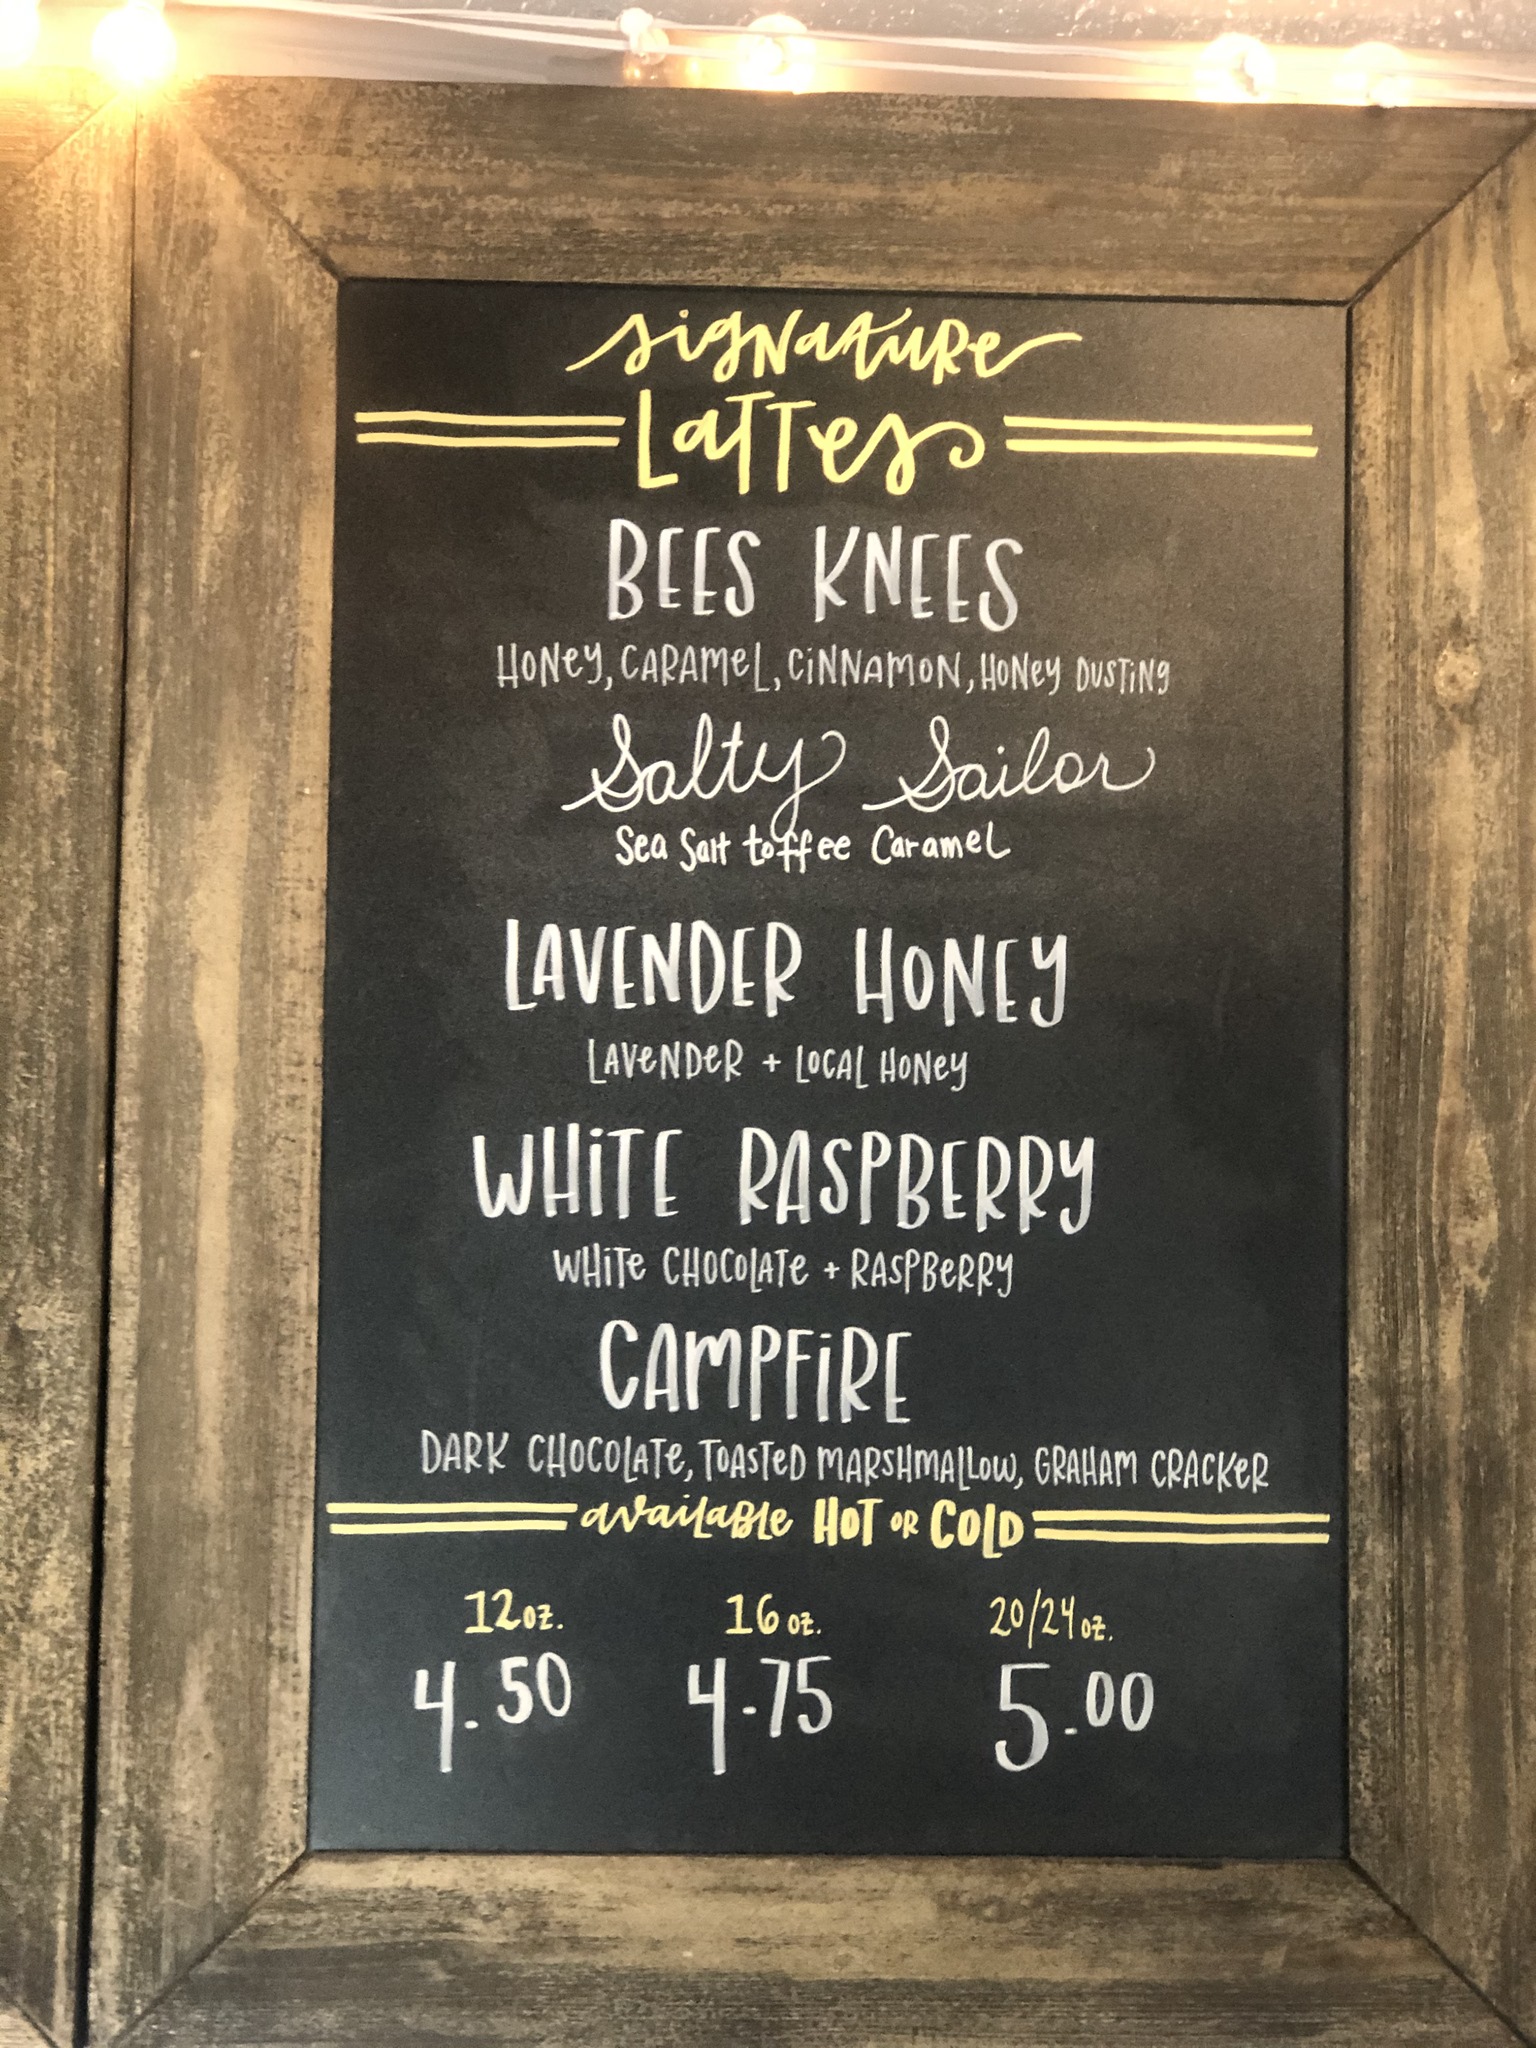 Signature
Lattes
BEES KNEES
HONEY, CARAMEL, CINNAMON, HONEY DUSTING
Salty Sailor
Sea Salt toffee Caramel
LAVENDER HONEY
LAVENDER + LOCAL HONEY
WHITE RASPBERRY
WHITE CHOCOLATE + RASPBERRY
CAMPFIRE
DARK CHOCOLATE, TOASTED MARSHMALLOW, GRAHAM CRACKER
available HOT OR COLD
12 oz. 16 oz. 20/24 oz.
4.50 4.75 5.00